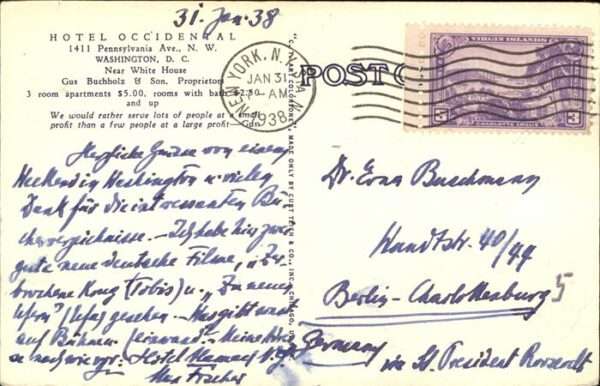 31. Jan. 38
HOTEL OCCIDENTAL
1411 Pennsylvania Ave., N. W.
WASHINGTON, D. C.
Near White House
Gus Buchholz & Son, Proprietors
3 room apartments $5.00, rooms with bath $2.50
and up
We would rather serve lots of people at a small
profit than a few people at a large profit—Gus.
NEW YORK, N.Y.
JAN 31
AM
1938
POST C
VIRGIN ISLANDS
3 3
"C.T. ART-COLORTONE" MADE ONLY BY CURT TEICH & CO., INC., CHICAGO, U.S.A.
Herzliche Grüsse von einem
Weekend in Washington u. vielen
Dank für die interessanten Bü-
cherverzeichnisse. – Ich habe hier zwei
gute neue deutsche Filme, „Zer-
brochene Krug (Tobis) u. „Zu neuen
Ufern" (Ufa) gesehen. – Was gibt
auf Bühnen – Meine Adres-
se nach wie vor: Hotel
Max Fischer
Dr. Erna Buschmann
Wandtstr. 40/44
Berlin-Charlottenburg 5
Germany
via St. President Roosevelt